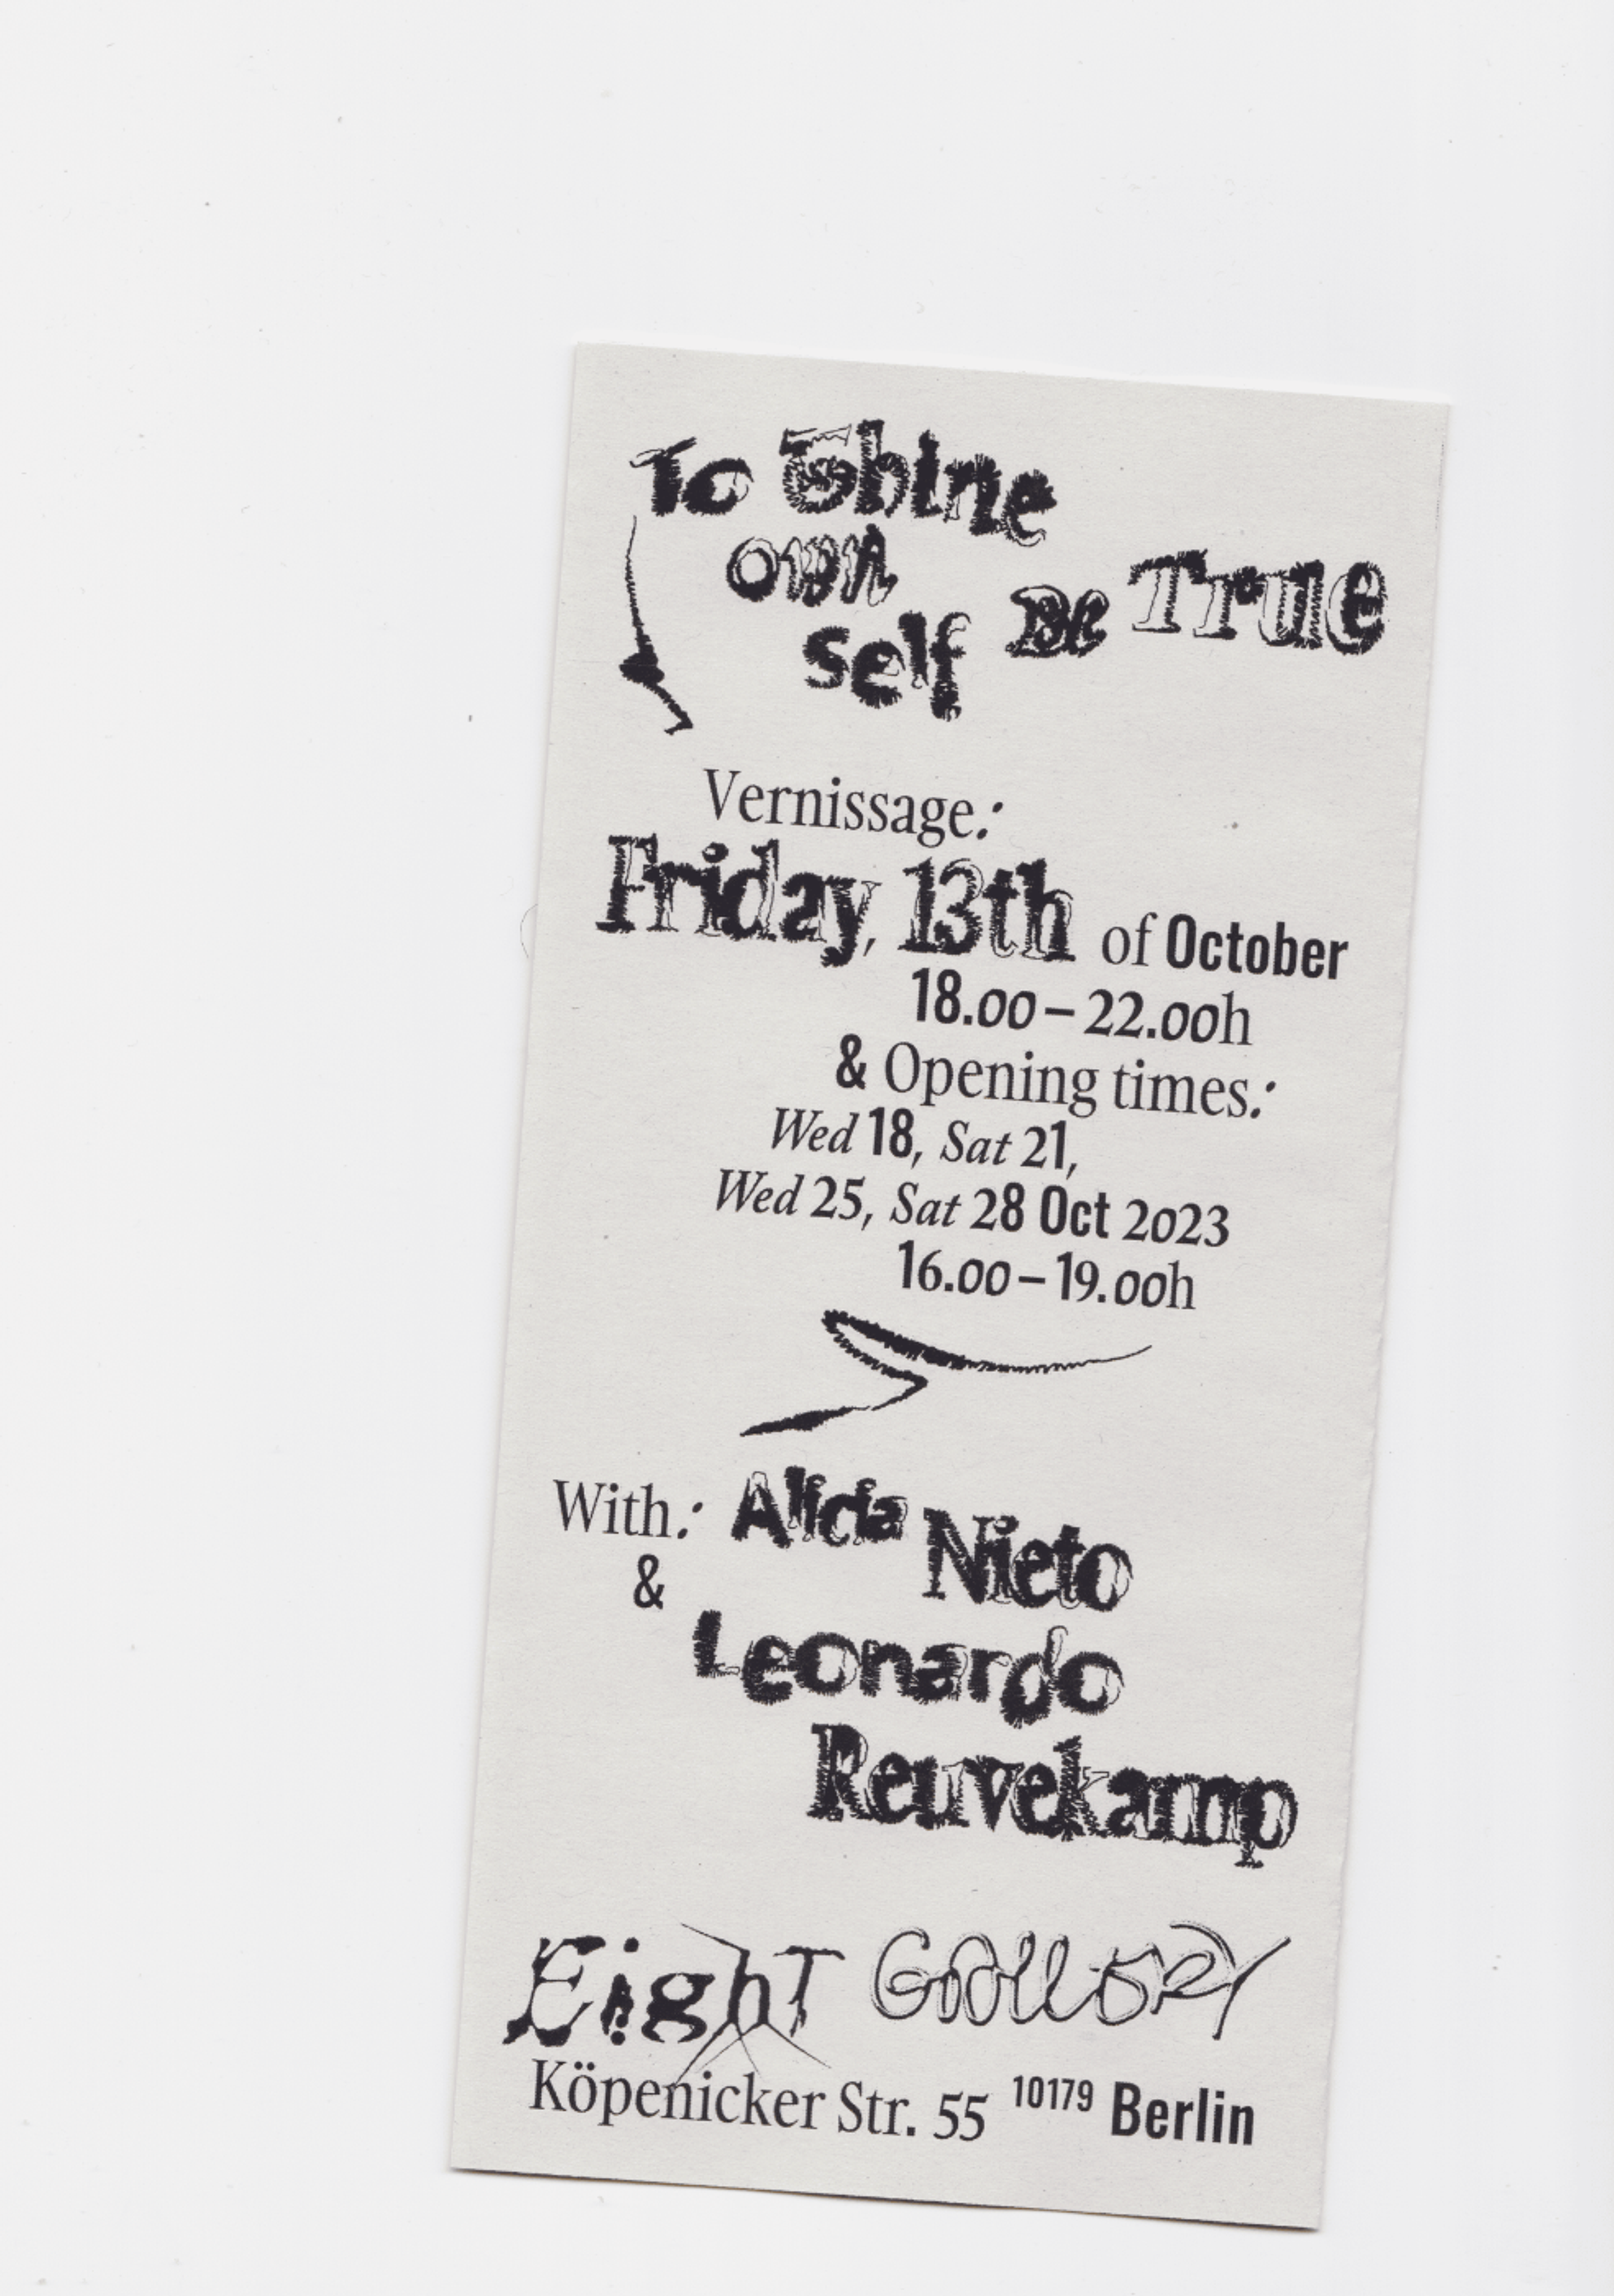 To Thine
own
self Be True
Vernissage:
Friday, 13th of October
18.00 – 22.00h
& Opening times:
Wed 18, Sat 21,
Wed 25, Sat 28 Oct 2023
16.00 – 19.00h
With: Alicia Nieto
&
Leonardo
Reuvekamp
EighT GAllERY
Köpenicker Str. 55 10179 Berlin